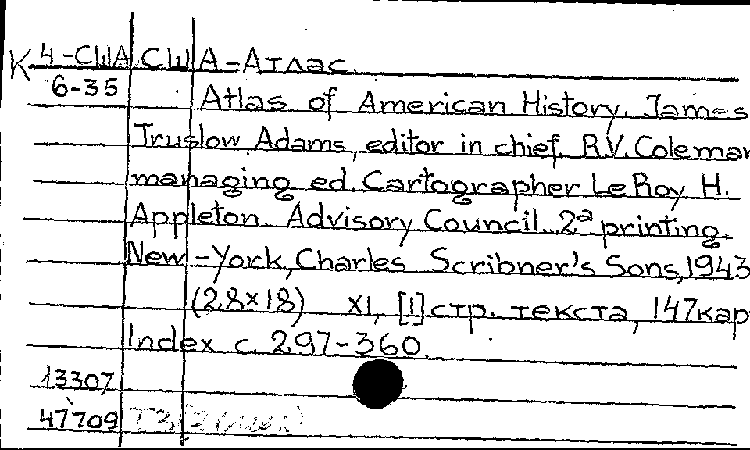 К 4-США США-Атлас
6-35 Atlas of American History. James
Truslow Adams, editor in chief, R.V. Coleman
managing ed. Cartographer Le Roy H.
Appleton. Advisory Council. 2ª printing.
New-York, Charles Scribner's Sons, 1943
(28×18) XI, [1] стр. текста, 147 кар
Index с 297-360
13307
47709